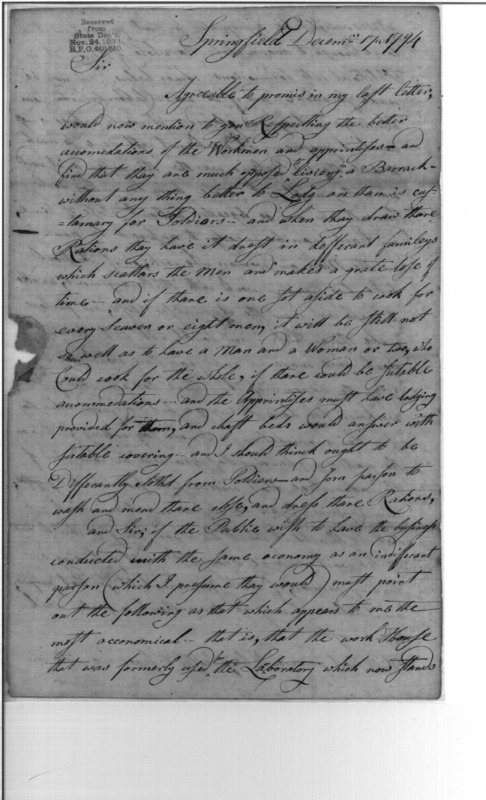 Received
from
State Dep't.
Nov. 24, 1894
R.P.O. 401810.
Springfield Decemr. 17. 1794
Sir
Agreeable to promis in my last letter,
would now mention to you Respecting the better
acomedations of the Workmen and apprintises - and
find that thay are much opposed a Barrack -
without any thing better to Lody on than is cus-
=tomary for Soldians - and when thay draw thare
Rations thay have it drest in defferant fameleys
which scatters the men and makes a grate lose of
time - and if thare is one sot aside to cook for
every seaven or eight men, it will be still not
so well as to have a Man and a Woman or two, who
Could cook for the whole, if thare could be sutable
acommendations - and the Apprintises must have lodging
provided for them, and chaff beds would answer with
sutable covering - and I should thinck ought to be
Differantly clothd from Soldiers - and som parson to
wash and mend thare close, and dress thare Rations,
and Sir, if the Public wish to have the business
conducted with the same economy as an indifirant
parson (which I presume thay would) must point
out the following as that which appears to me the
most occonomical - that is, that the work House
that was formerly used the Laboratory which now stands